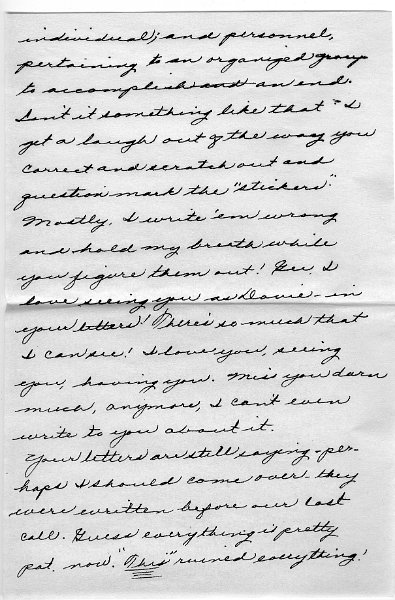 individual); and personnel,
pertaining to an organized group
to accomplish and an end.
Isn't it something like that - I
get a laugh out of the way you
correct and scratch out and
question mark the "stickers".
Mostly, I write 'em wrong
and hold my breath while
you figure them out! Gee, I
love seeing you as Davie - in
your letters! There's so much that
I can see! I love you, seeing
you, having you. Miss you darn
much, anymore, I can't even
write to you about it.
Your letters are still saying - per-
haps I should come over. they
were written before our last
call. Guess everything is pretty
pat, now. "This" ruined everything!